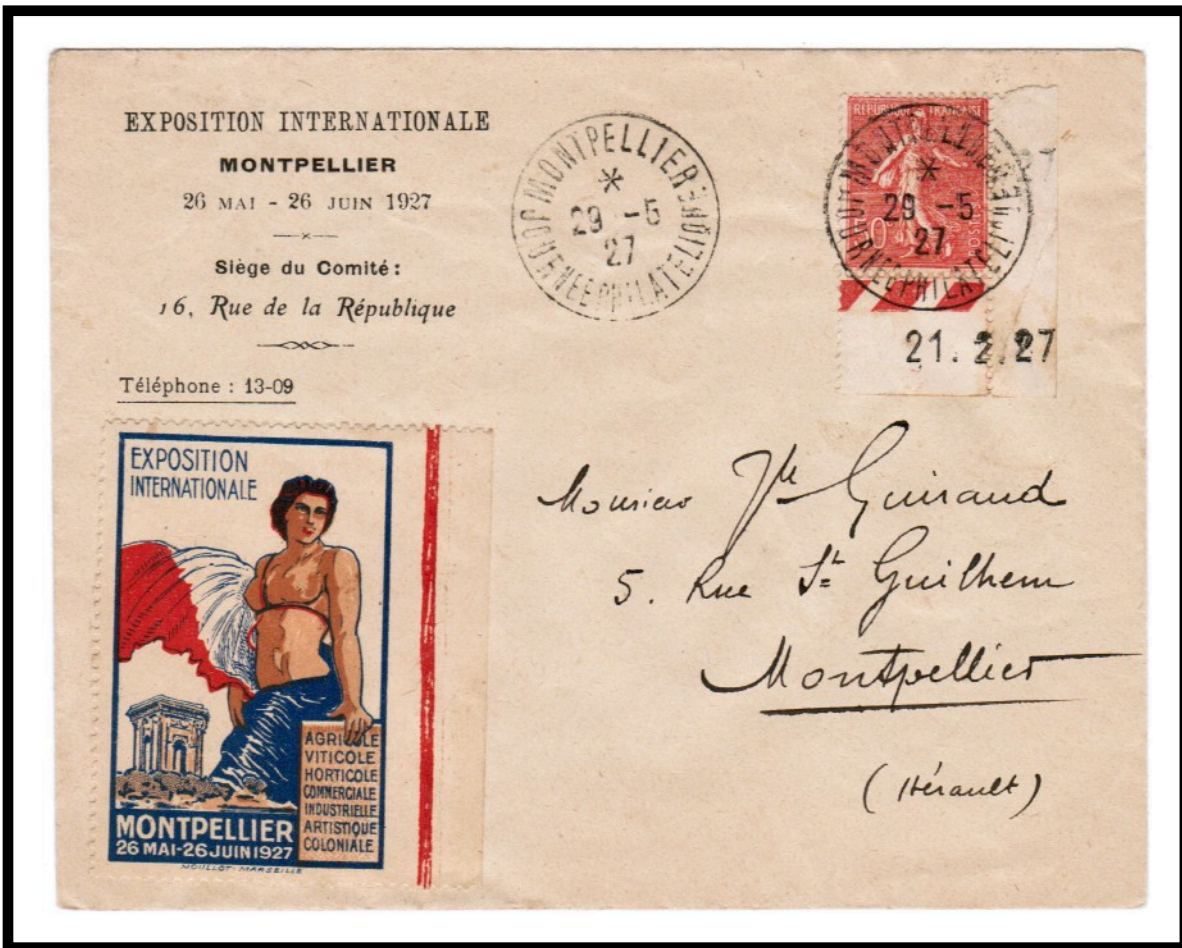 EXPOSITION INTERNATIONALE
MONTPELLIER
26 MAI - 26 JUIN 1927
Siège du Comité :
16, Rue de la République
Téléphone : 13-09
MONTPELLIER
JOURNÉE PHILATELIQUE
29 -5
27
REPUBLIQUE FRANÇAISE
50c
POSTES
MONTPELLIER
JOURNÉE PHILATELIQUE
29 -5
27
21. 2. 27
EXPOSITION
INTERNATIONALE
AGRICOLE
VITICOLE
HORTICOLE
COMMERCIALE
INDUSTRIELLE
ARTISTIQUE
COLONIALE
MONTPELLIER
26 MAI-26 JUIN 1927
MOULLOT-MARSEILLE
Monsieur Guiraud
5. Rue St Guilhem
Montpellier
(Hérault)